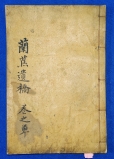 蘭蕉遺稿 卷之單